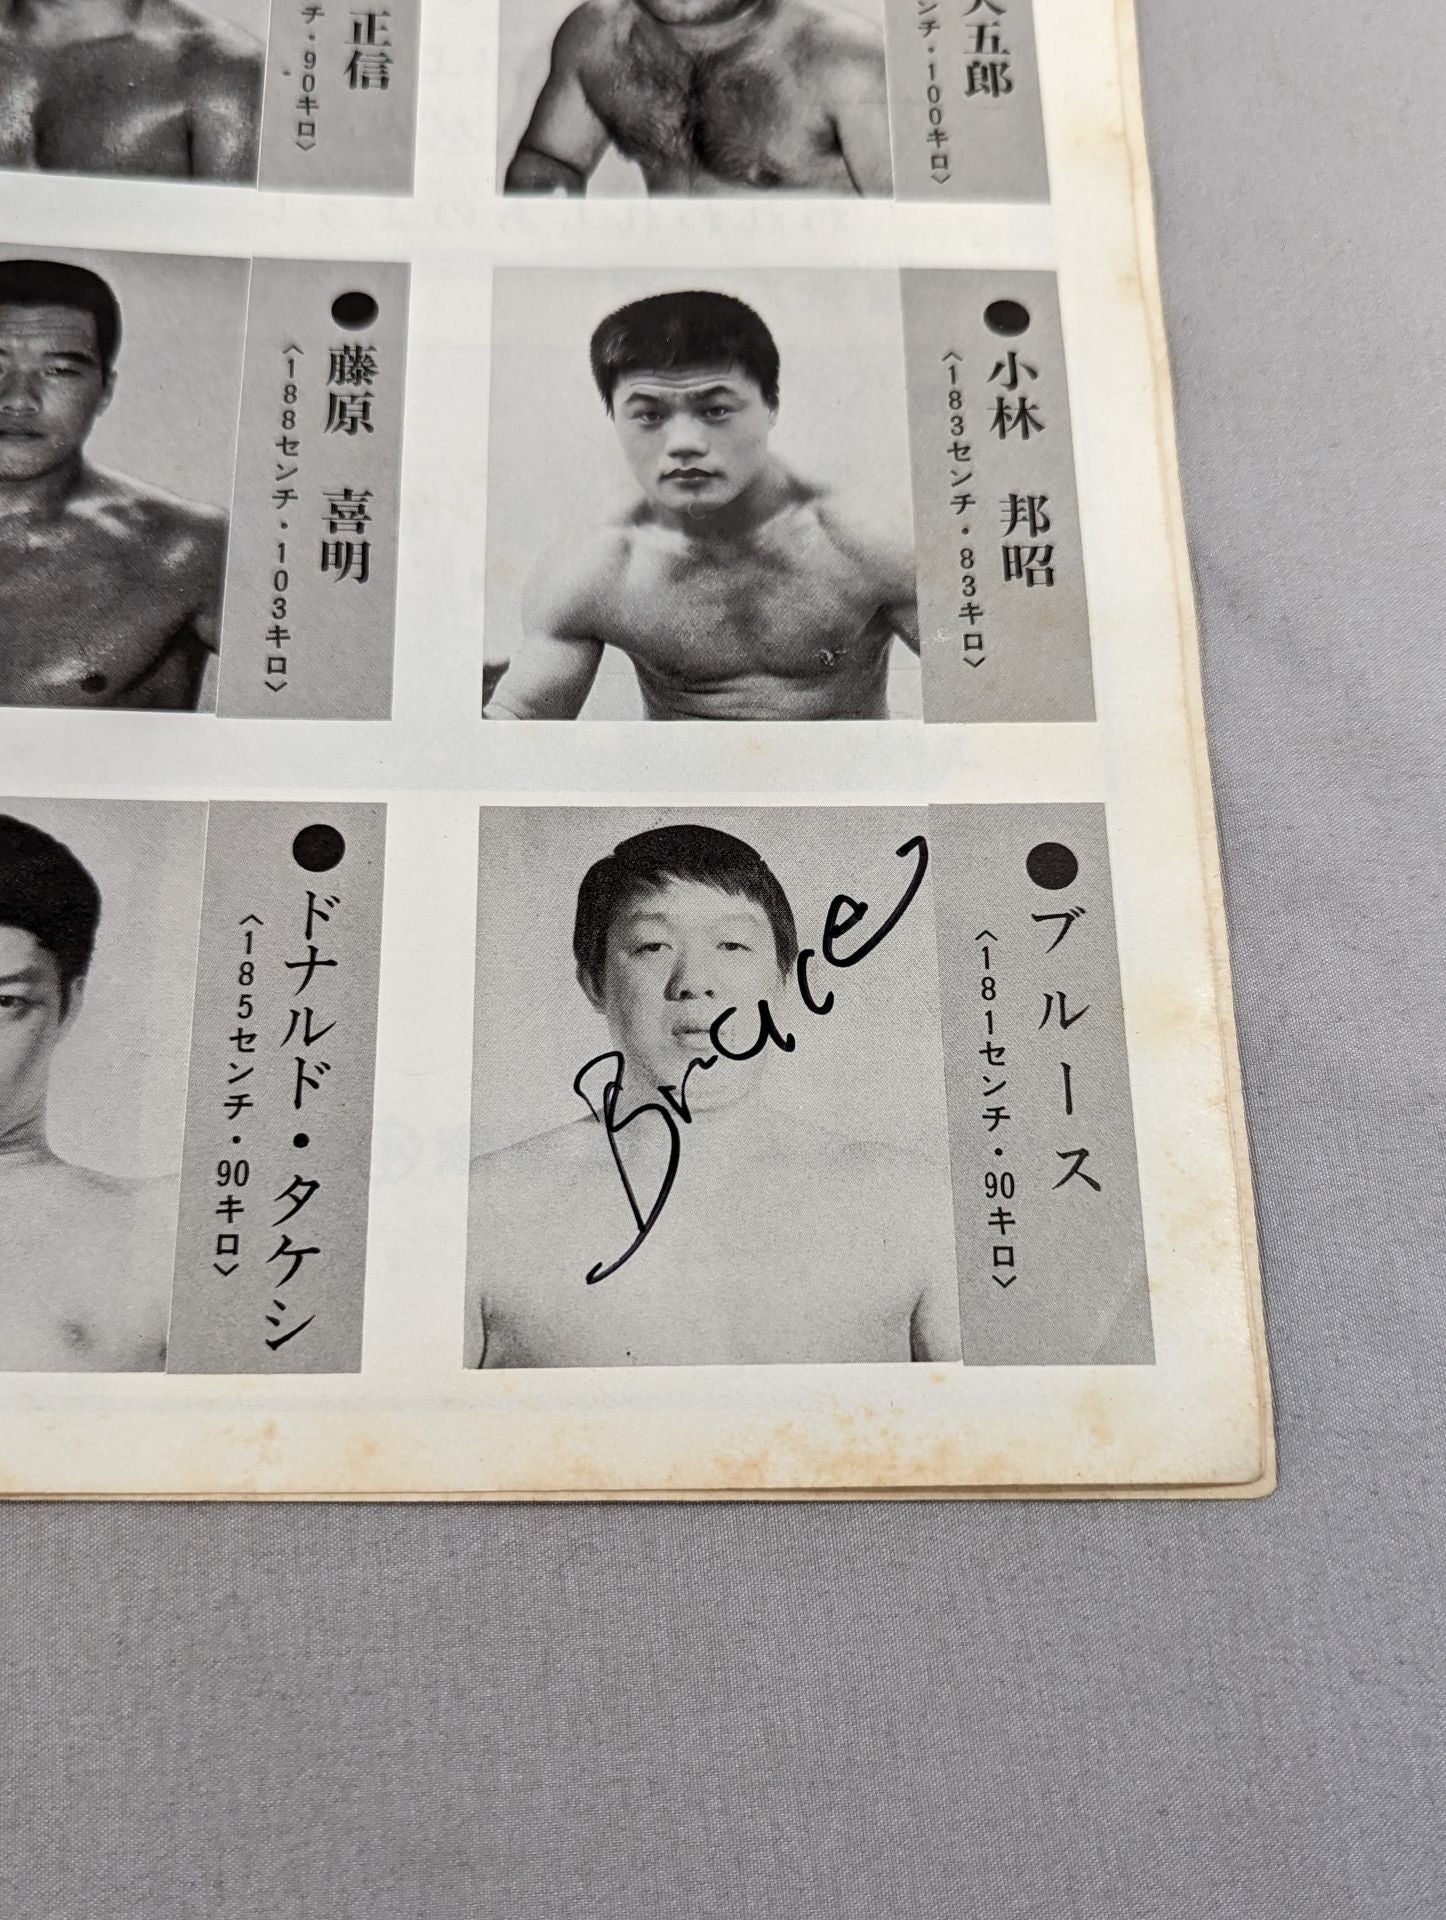 正信
チ・90キロ〉
五郎
ンチ・100キロ〉
●藤原 喜明
〈188センチ・103キロ〉
●小林 邦昭
〈183センチ・83キロ〉
●ドナルド・タケシ
〈185センチ・90キロ〉
●ブルース
〈181センチ・90キロ〉
Bruce